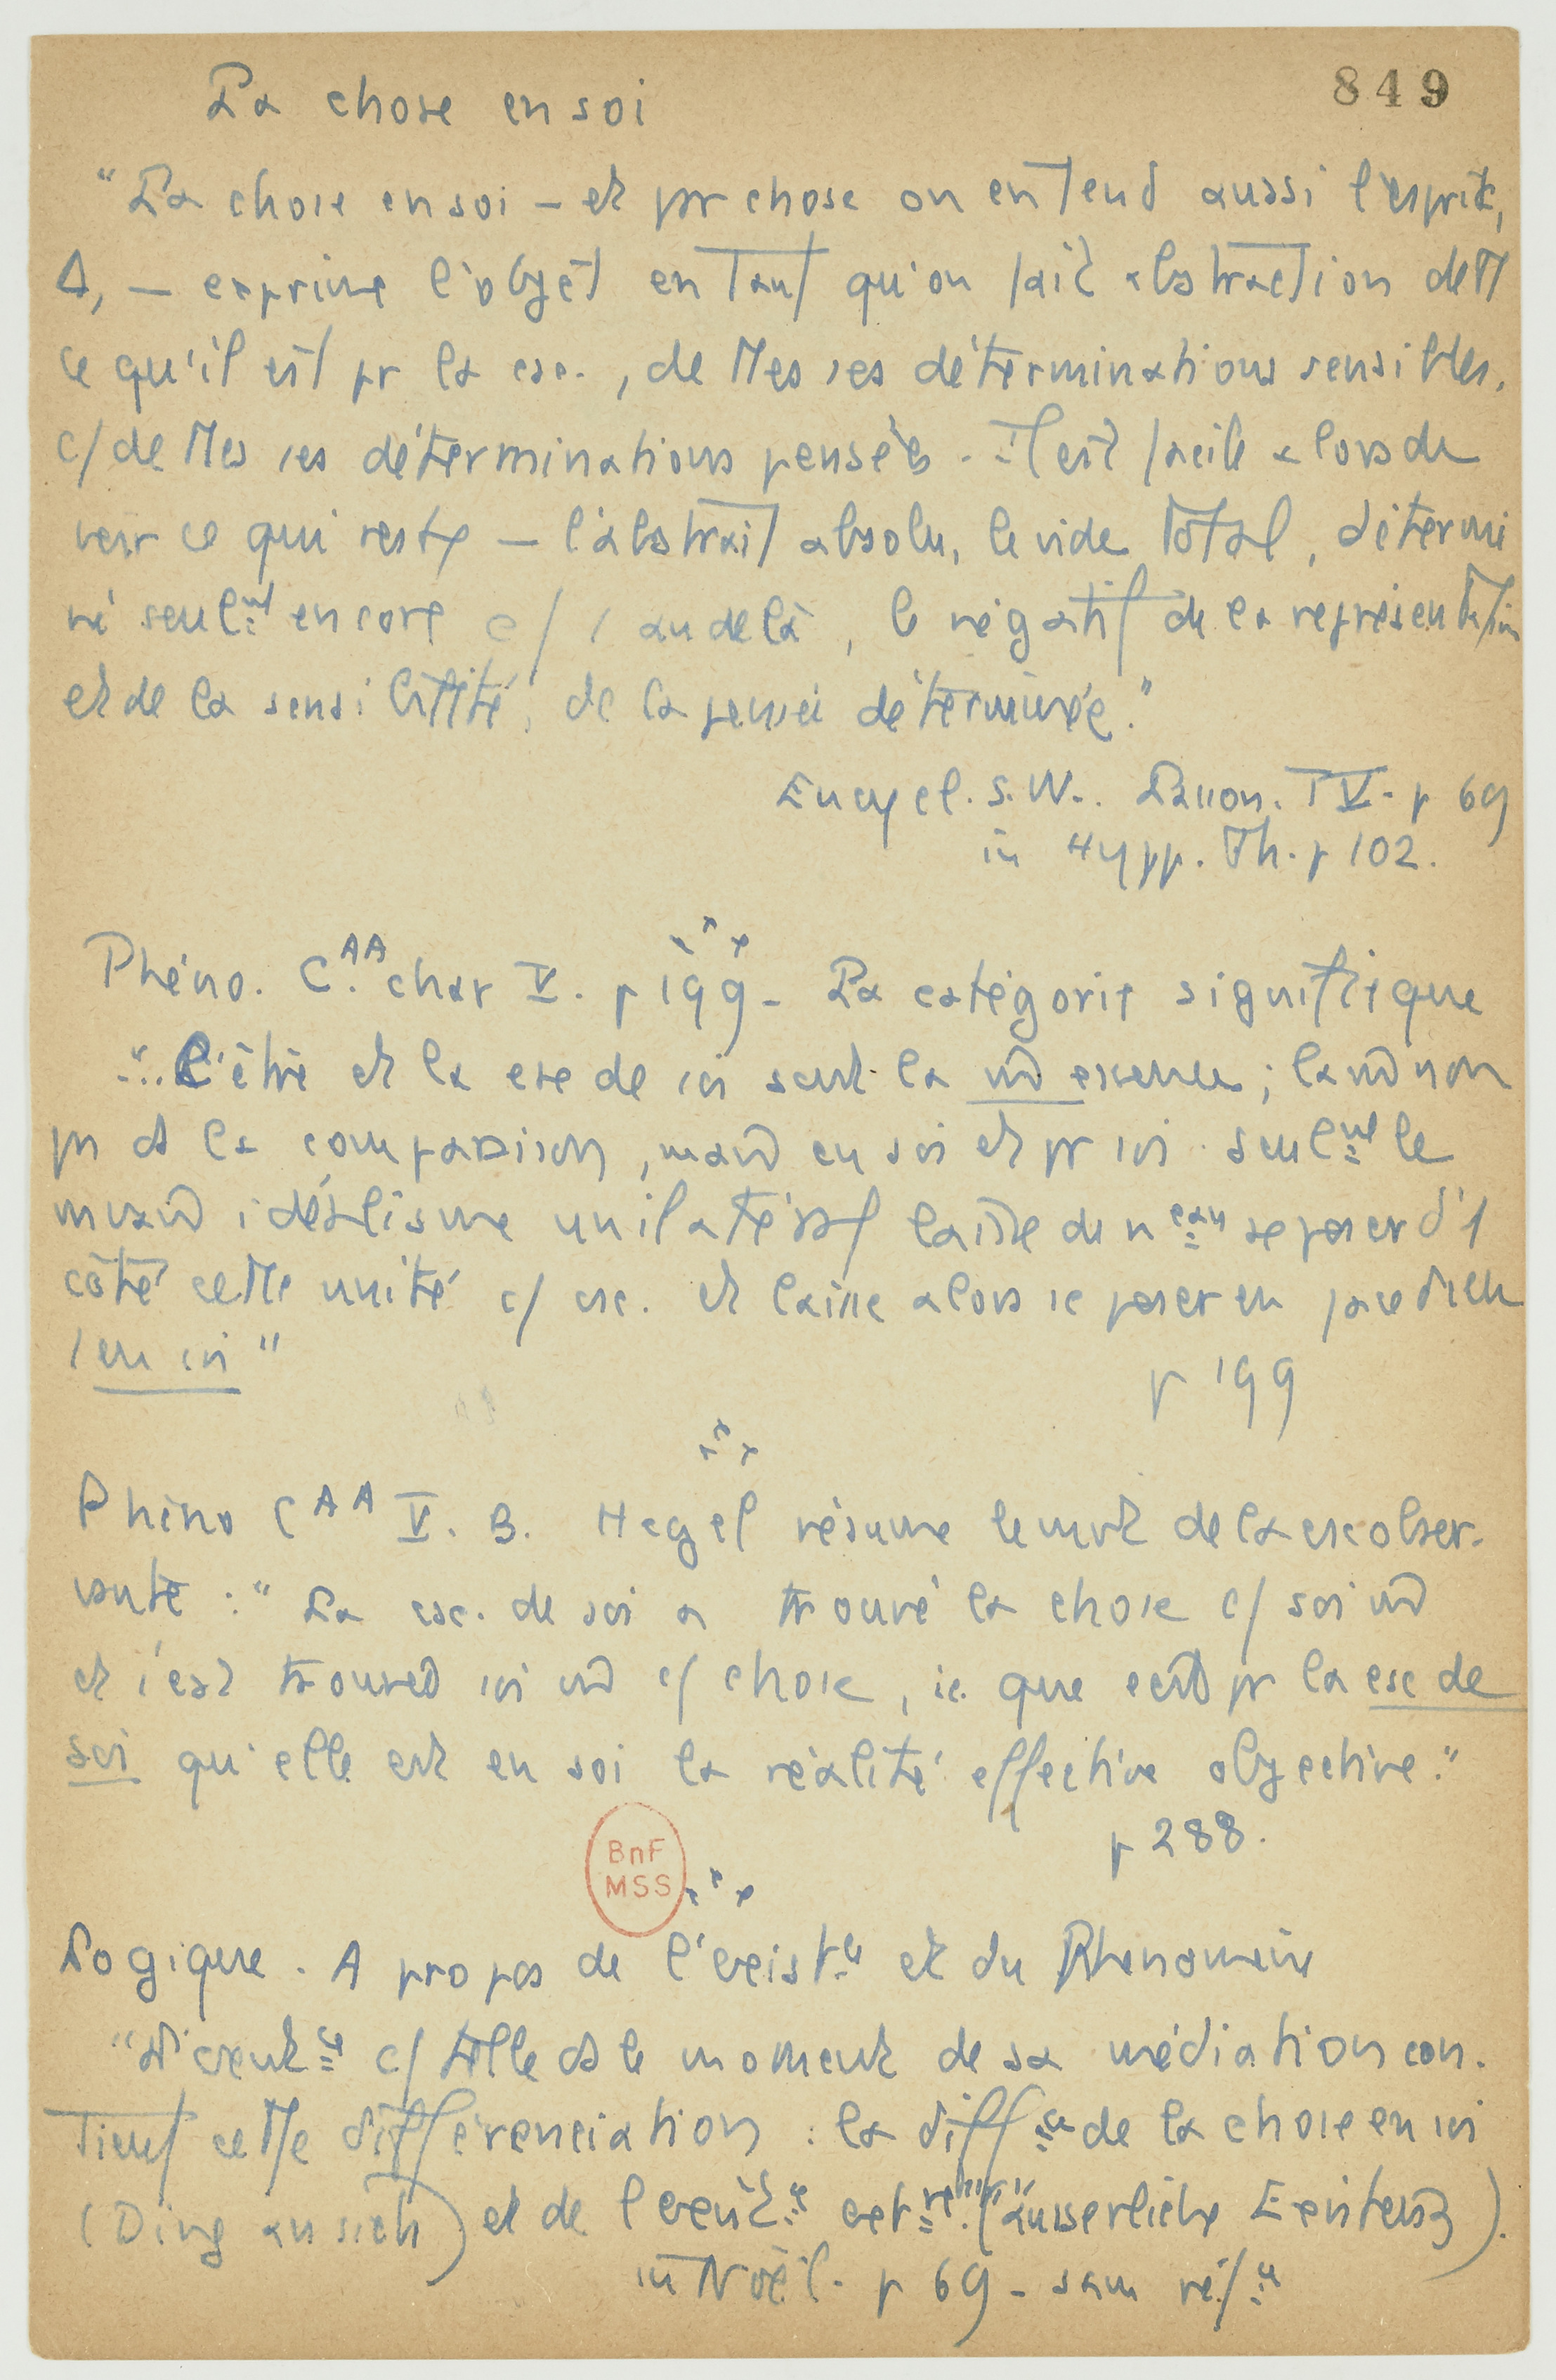 849
La chose en soi
"La chose en soi – et pr chose on entend aussi l'esprit,
Δ, — exprime l'objet en tant qu'on fait abstraction de tt
ce qu'il est pr la csc., de ttes ses déterminations sensibles,
c/ de ttes ses déterminations pensées. Il est facile alors de
voir ce qui reste – l'abstrait absolu, le vide total, détermi
né seulmt encore c/ 1 au delà, le négatif de la représentation
et de la sensibilité, de la pensée déterminée."
Encycl. S.W. Lasson. T V. p 69
in Hypp. Th. p 102.
Phéno. C. AA chap V. p 199 – La catégorie signifie que
"... l'être et la csc de soi sont la md essence; la md non
pas ds la comparaison, mais en soi et pr soi. Seulmt le
mauvais idéalisme unilatéral laisse de neau se poser d'1
côté cette unité c/ csc. et laisse alors se poser en face d'elle
1 en soi"
p 199
Phéno C AA V. B. Hegel résume le mvt de la csc obser-
vante : "La csc. de soi a trouvé la chose c/ soi md
et s'est trouvée soi md c/ chose, ie. que c'est pr la csc de
soi qu'elle est en soi la réalité effective objective."
p 288.
BnF
MSS
Logique. A propos de l'existce et du Phénomène
"L'existce c/ telle ds le moment de sa médiation con-
tient cette différenciation : la diffce de la chose en soi
(Ding an sich) et de l'existce extre." (äusserliche Existenz).
in Noël. p 69 – sans réfce